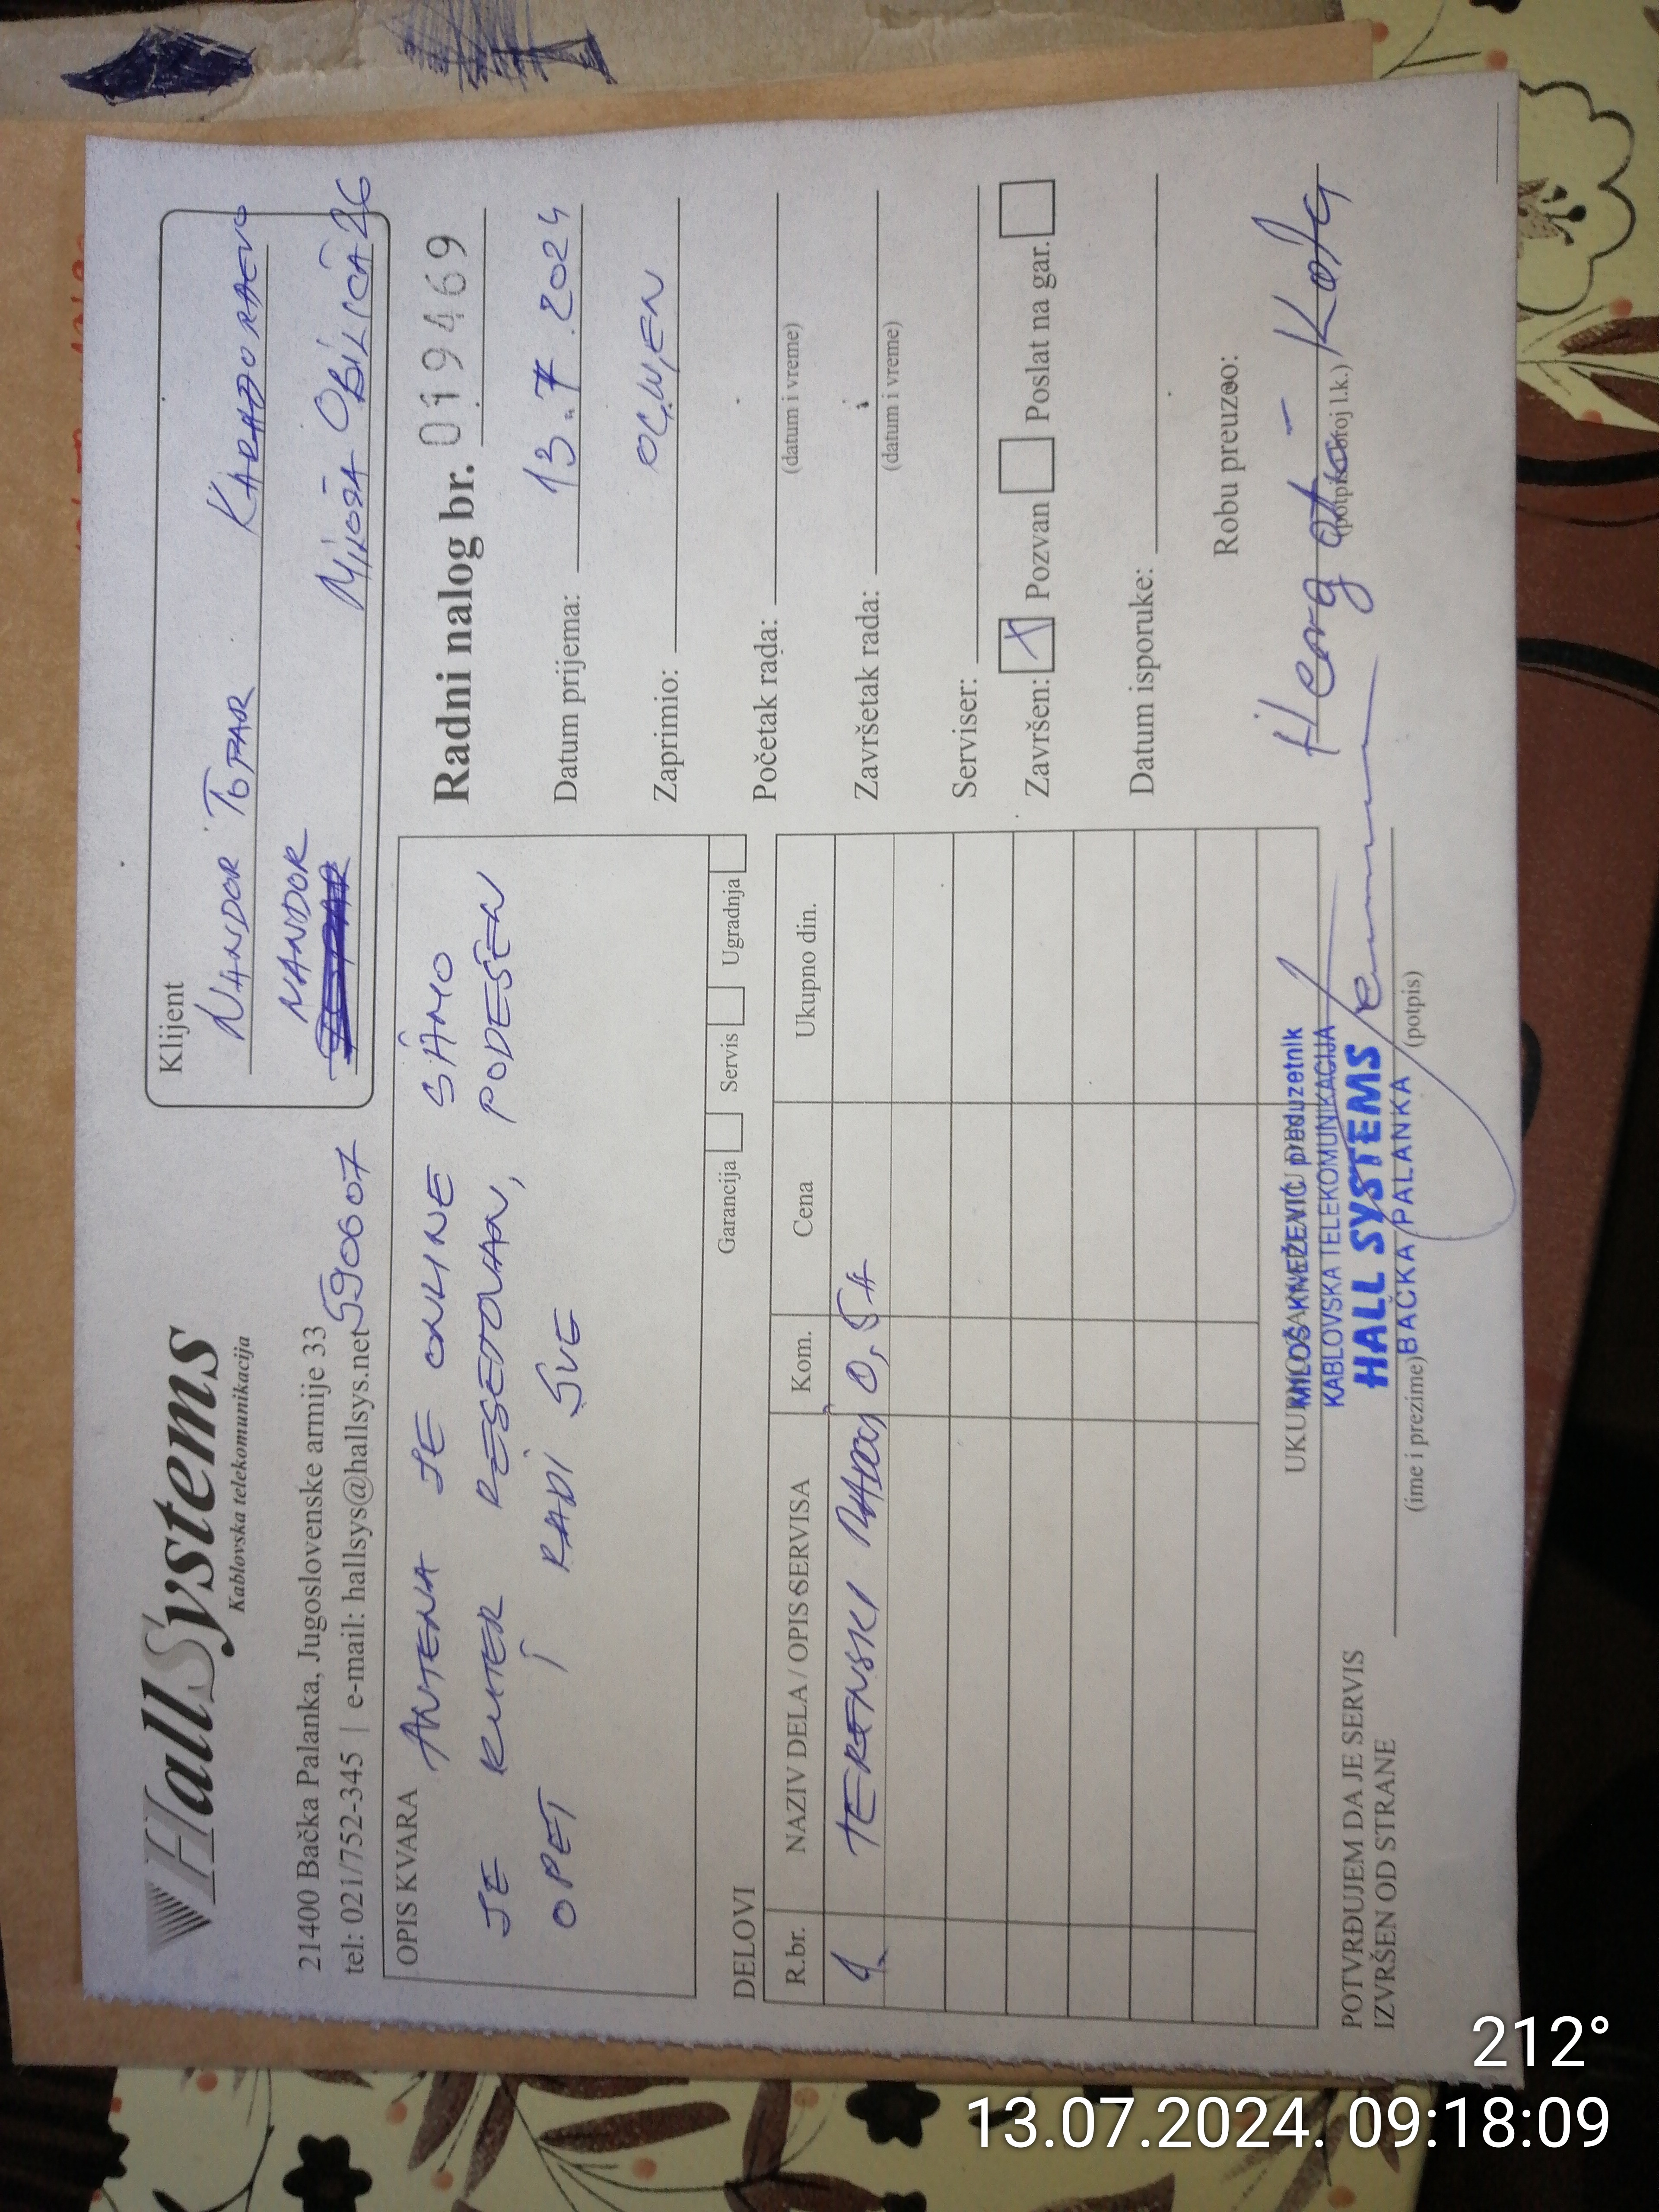 HallSystems
Kablovska telekomunikacija
21400 Bačka Palanka, Jugoslovenske armije 33
tel: 021/752-345 | e-mail: hallsys@hallsys.net
590607
Klijent
NANDOR TOPAR KARAĐORĐEVO
NANDOR
MILOŠA OBILIĆA 26
OPIS KVARA
ANTENA JE ONLINE SAMO
JE RUTER RESETOVAN, PODEŠEN
OPET I RADI SVE
Garancija Servis Ugradnja
Radni nalog br. 019469
Datum prijema: 13.7.2024
Zaprimio:
Početak rada:
(datum i vreme)
Završetak rada:
(datum i vreme)
Serviser:
Završen: X Pozvan Poslat na gar.
Datum isporuke:
Robu preuzeo:
(potpis i broj l.k.)
DELOVI
R.br. NAZIV DELA / OPIS SERVISA Kom. Cena Ukupno din.
1. TERENSKI RADOVI 0,5H
MILOŠ KNEŽEVIĆ preduzetnik
KABLOVSKA TELEKOMUNIKACIJA
HALL SYSTEMS
BAČKA PALANKA
POTVRĐUJEM DA JE SERVIS
IZVRŠEN OD STRANE
(ime i prezime) (potpis)
212°
13.07.2024. 09:18:09